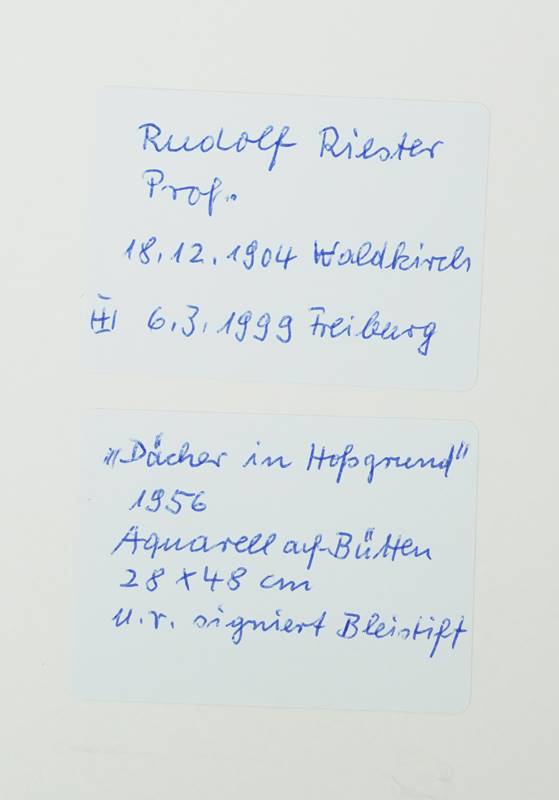 Rudolf Riester
Prof.
18.12.1904 Waldkirch
6.3.1999 Freiburg
„Dächer in Hoßgrund"
1956
Aquarell auf Bütten
28 x 48 cm
u.r. signiert Bleistift